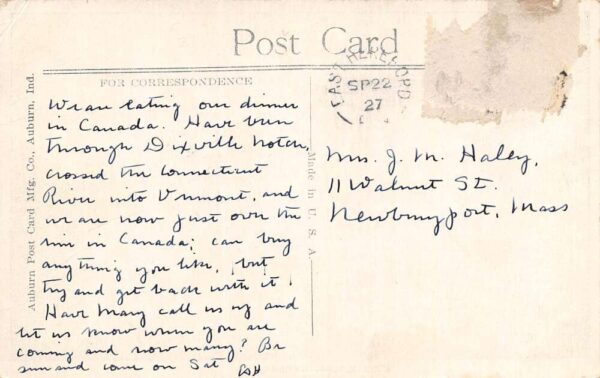 Post Card
FOR CORRESPONDENCE
We are eating our dinner
in Canada. Have been
through Dixville Notch,
crossed the Connecticut
River into Vermont, and
we are now just over the
line in Canada; can buy
anything you like, but
try and get back with it!
Have Mary call us up and
let us know when you are
coming and how many? Be
sure and come on Sat
EAST HEREFORD
SP 22
27
Mrs. J. M. Haley,
11 Walnut St.
Newburyport, Mass
Auburn Post Card Mfg. Co., Auburn, Ind.
Made in U. S. A.